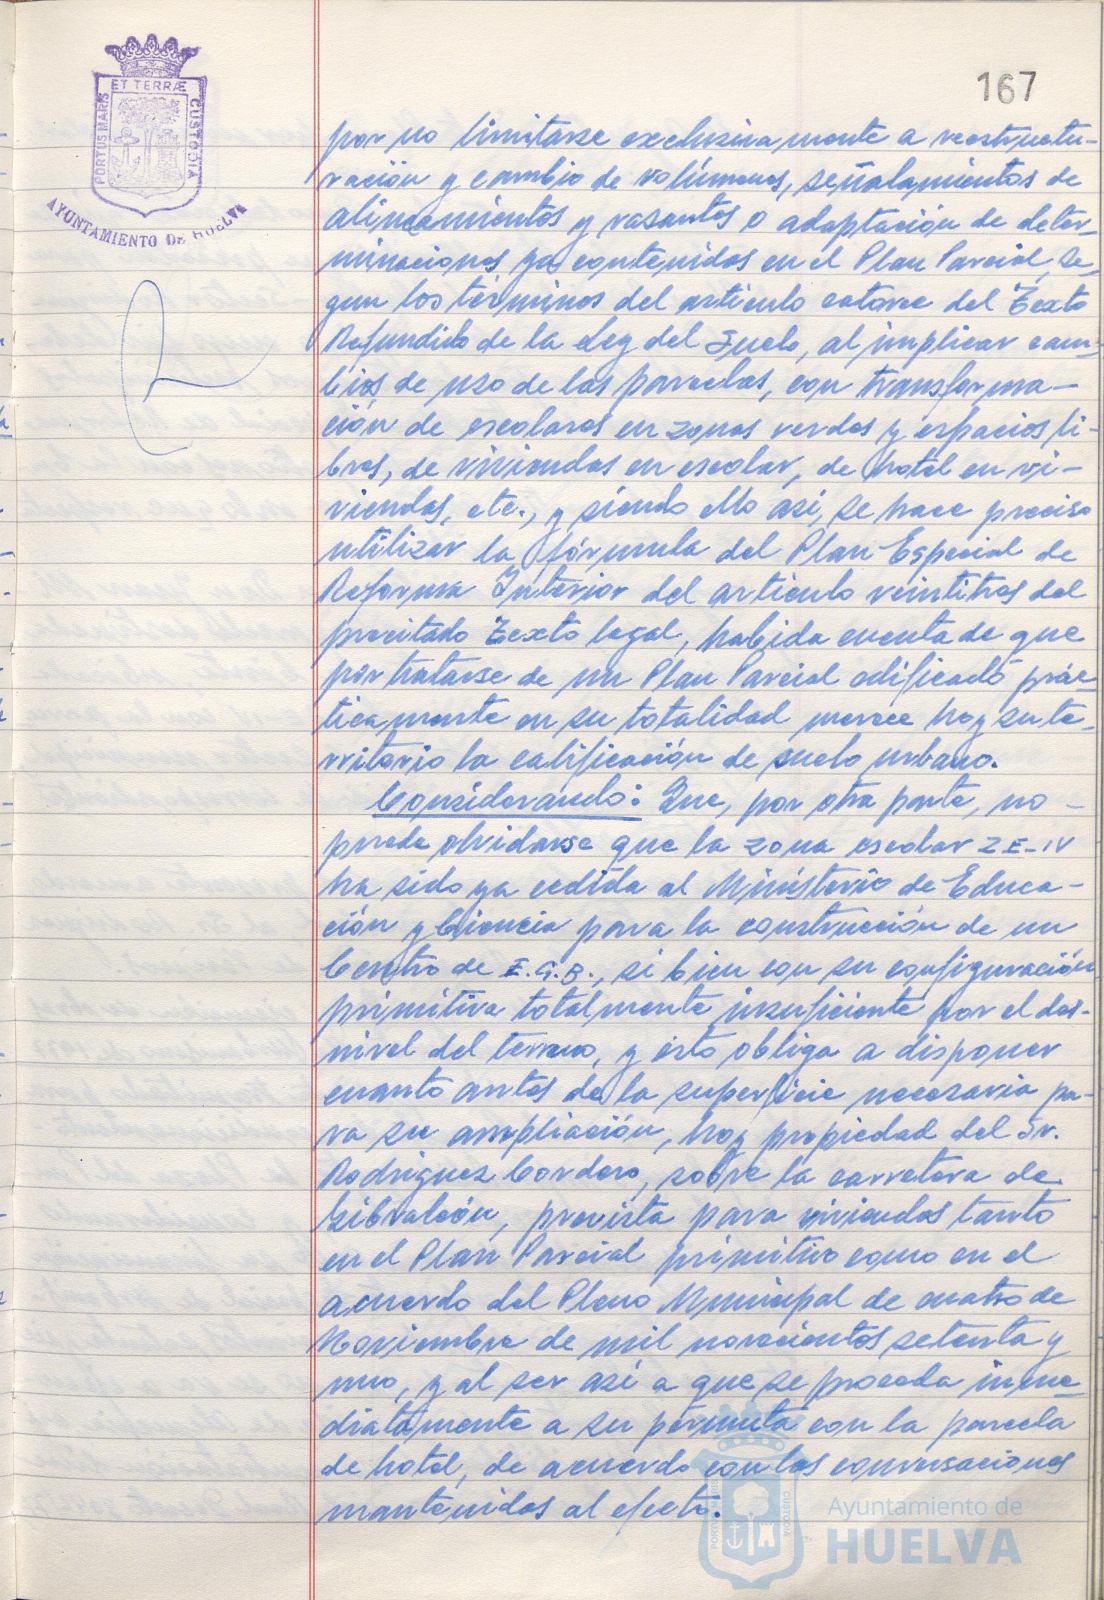 ET TERRÆ
PORTUS MARIS
CUSTODIA
AYUNTAMIENTO DE HUELVA
167
por no limitarse exclusivamente a reestructu-
ración y cambio de volúmenes, señalamientos de
alineamientos y rasantes o adaptación de deter-
minaciones ya contenidas en el Plan Parcial, se-
gun los términos del artículo catorce del Texto
Refundido de la Ley del Suelo, al implicar cam-
bios de uso de las parcelas, con transforma-
ción de escolares en zonas verdes y espacios li-
bres, de viviendas en escolar, de hotel en vi-
viendas, etc., y siendo ello así, se hace preciso
utilizar la fórmula del Plan Especial de
Reforma Interior del artículo veintitres del
precitado Texto legal, habida cuenta de que
por tratarse de un Plan Parcial edificado prác-
ticamente en su totalidad merece hoy su te-
rritorio la calificación de suelo urbano.
Considerando: Que, por otra parte, no -
puede olvidarse que la zona escolar ZE-IV
ha sido ya cedida al Ministerio de Educa-
ción y Ciencia para la construcción de un
Centro de E.G.B., si bien con su configuración
primitiva totalmente insuficiente por el des-
nivel del terreno, y ésto obliga a disponer
cuanto antes de la superficie necesaria pa-
ra su ampliación, hoy propiedad del Sr.
Rodríguez Cordero, sobre la carretera de
Gibraleón, prevista para viviendas tanto
en el Plan Parcial primitivo como en el
acuerdo del Pleno Municipal de cuatro de
Noviembre de mil novecientos setenta y
uno, y al ser así a que se proceda inme-
diatamente a su permuta con la parcela
de hotel, de acuerdo con las conversaciones
mantenidas al efecto.
Ayuntamiento de
HUELVA